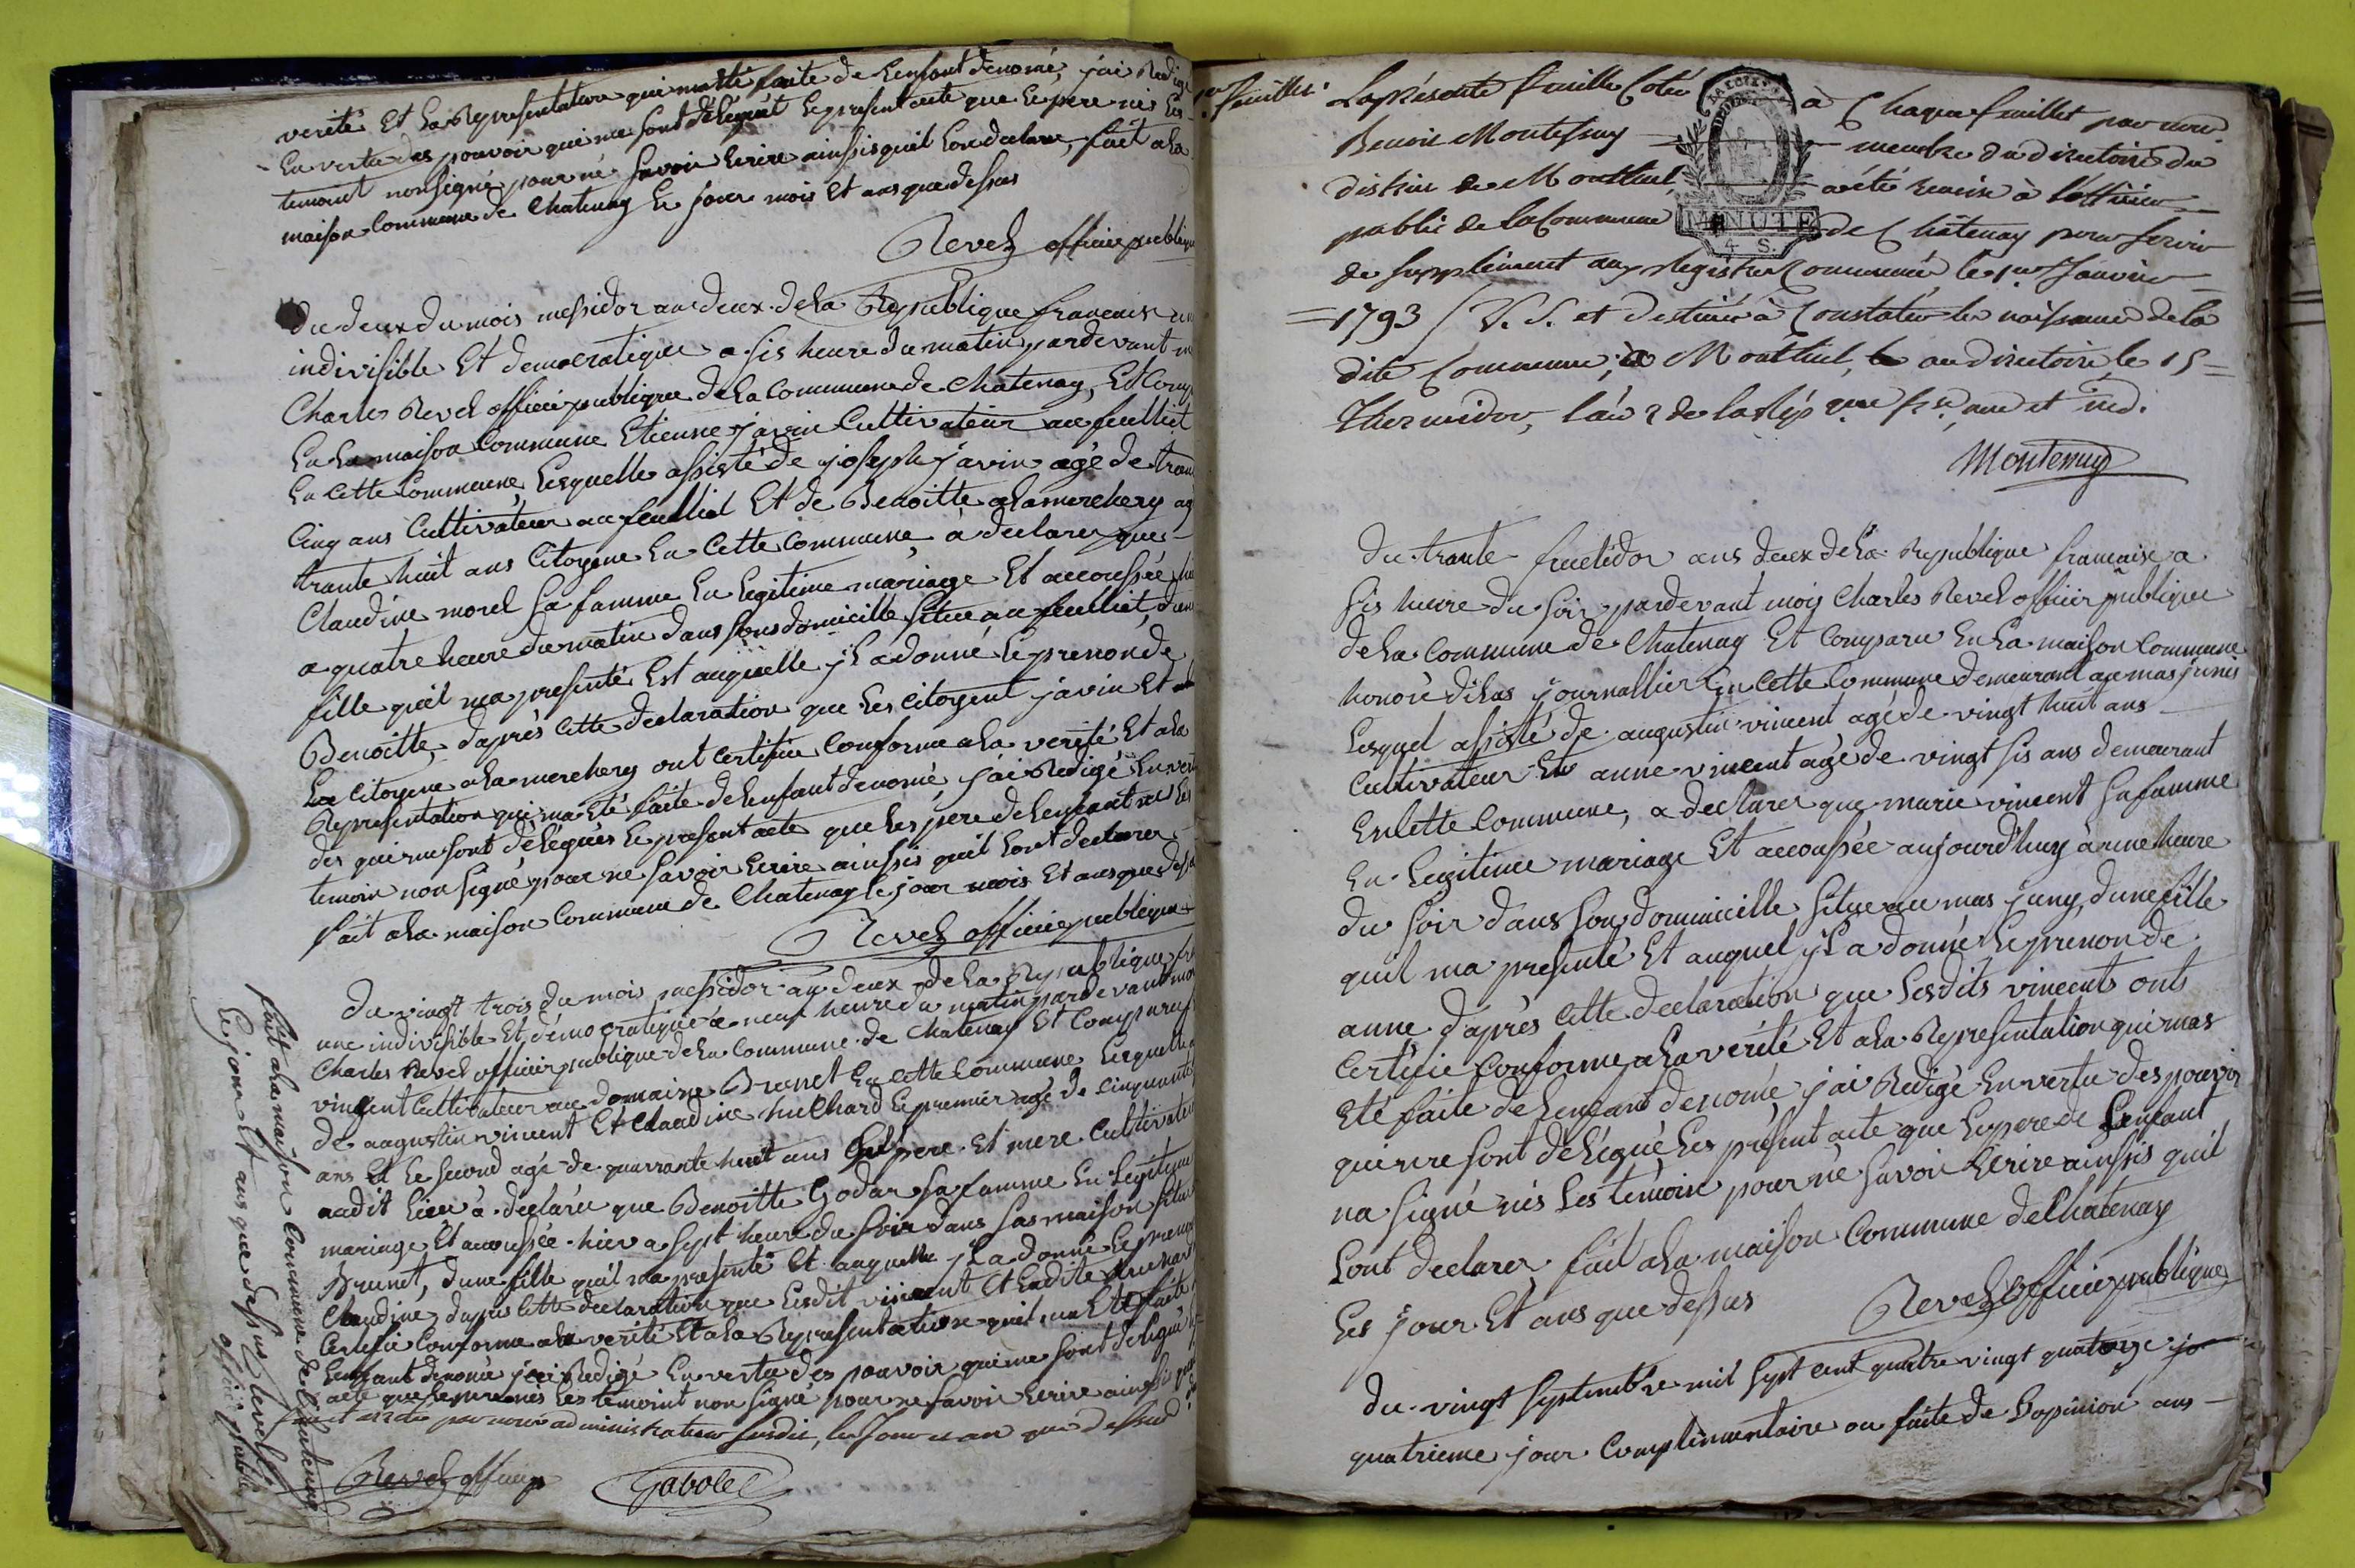 verité Et La Representation qui ma Eté faite de Lenfant denomé, j'ai Redigé
En vertu des pouvoir qui me sont délégués Le present acte que Le pere nis Les
temoint non signé pour ne savoir Ecrire ainssis quil Lon declare, fait a La
maison Commune de Chatenay Le jour mois Et ans que dessus
Revel officie publique
Du deux du mois messidor an deux de La Republique francaise une
indivisible Et democratique a sis heure du matin pardevant moi
Charles Revel officié publique de La Commune de Chatenay, Et Comp
En La maison Commune Etienne javin Cultivateur au feulliet
En Cette Commune, Lesquelle assisté de joseph javin agé de trante
Cinq ans Cultivateur au feulliet Et de Benoitte alamerchery ag
trante huit ans Citoyene En Cette Commune, à declarer que
Claudine morel Sa famme En Legitime mariage Et accoussée
a quatre heure du matin dans sons domicille situé au feulliet, dune
fille quil ma presenté Est auquelle jl a donné Le prenon de
Benoitte, d'après Cette declaration que Les Citoyent javin Et
La Citoyene alamerchery ont Certifiée Conforme a La verité Et a La
Representation qui ma Eté faite de Lenfant denomé, j'ai Redigé En vertu
des qui me sont délégués Le present acte que Les pere de Lenfant nis Les
temoin non signé pour ne savoir Ecrire ainssis quil Lont declarer
fait a La maison Commune de Chatenay Le jour mois Et ans que dessus
Revel officié publique
Du vingt trois du mois messidor an deux de La Republique fr
une indivisible Et démocratique a neuf heure du matin pardevant moi
Charles Revel officié publique de La Commune de Chatenay Et Comparu
vincent Cultivateur au domaine Brunet En Cette Commune Lesquelle
de augustin vincent Et Claudine Le premier agé de Cinquante
ans Et Le second agé de quarrante huit ans pere Et mere Cultivateur
audit Lieu à declarée que Benoitte Godar Sa famme En Legitime
mariage Et accoussée hier a sept heure du soir dans sas maison situé
Brunet, d'une fille quil ma presenté Et auquelle jl a donné Le prenon
Claudine, dapres Cette declaration que Lesdit vincent Et Ladite
Certifie Conforme a La verité Et a La Representation qui ma Eté faite
Lenfant denomé j'ai Redigé En vertu des pouvoir qui me sont delegué
acte que Le pere nis Les temoint non signé pour ne savoir Ecrire ainssi
par nous administrateur susdit, les Jour et an que dessus
Revel off
fait a La maison Commune de Chatenay
Le jour Et ans que dessus Revel
officié public
feuillet
La présente feuille Cotée à Chaque feuillet par nous
Benoit Montessuy membre du directoire du
district de Montluel a été remise à l'officier
public de la Commune de Châtenay pour servir
MINUTE
4 S.
de supplément aux registres Commencé le 1er Janvier
1793 / V. S. et destinée à Constater les naissances de la
dite Commune, à Montluel, au directoire le 15
Thermidor, l'an 2 de la Rép que fse, une et ind.
Montessuy
Du trante fructidor ans deux de La Republique francaise a
sis heure du soir pardevant mois Charles Revel officier publique
de La Commune de Chatenay Et Comparu En La maison Commune
honoré dilas journallier En Cette Commune demeurant au mas junis
Lesquel assisté de augustin vincent agé de vingt huit ans
Cultivateur Et anne vincent agé de vingt sis ans demeurant
En Cette Commune, a declarer que marie vincent Sa famme
En Legitime mariage Et accoussée aujourd'huy à une heure
du soir dans son dominicille situé au mas juny, d'une fille
quil ma presenté Et auquel jl a donné Le prenon de
anne d'après Cette declaration que Lesdits vincent onts
Certifie Conforme a La verité Et a La Representation qui mas
Eté faite de Lenfant denomé j'ai Redigé En vertu des pouvoir
qui me sont délégué Les présent acte que Le pere de Lenfant
na signé nis Les temoins pour ne savoir Ecrire ainssis quil
Lont declarer, fait a La maison Commune de Chatenay
Les jour Et ans que dessus Revel officié publique
Du vingt septembre mil sept cent quatre vingt quatorze
quatrieme jour Complimentaire ou faite de Lopinion ans